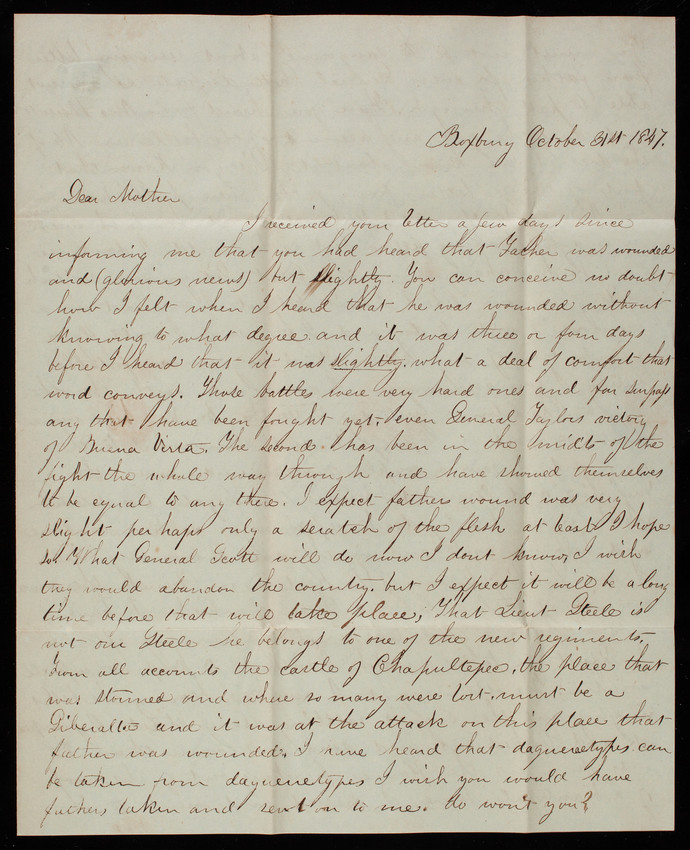 Boxbury October 31st 1847.
Dear Mother
I received your letter a few days since
informing me that you had heard that Father was wounded
and (glorious news) but slightly. You can conceive no doubt
how I felt when I heard that he was wounded without
knowing to what degree and it was three or four days
before I heard that it was slightly. what a deal of comfort that
word conveys. Those battles were very hard ones and far surpass
any that have been fought yet, even General Taylors victory
of Buena Vista. The second has been in the midst of the
fight the whole way through and have showed themselves
to be equal to any there. I expect father wound was very
slight perhaps only a scratch of the flesh at least I hope
so. What General Scott will do now I dont know, I wish
they would abandon the country. but I expect it will be a long
time before that will take place, That Lieut Steele is
not our Steele he belongs to one of the new regiments.
From all accounts the castle of Chapultepec, the place that
was stormed and where so many were lost, must be a
Giberalta and it was at the attack on this place that
father was wounded. I have heard that daguenetypes can
be taken from daguenetypes I wish you would have
fathers taken and sent on to me. do won't you?